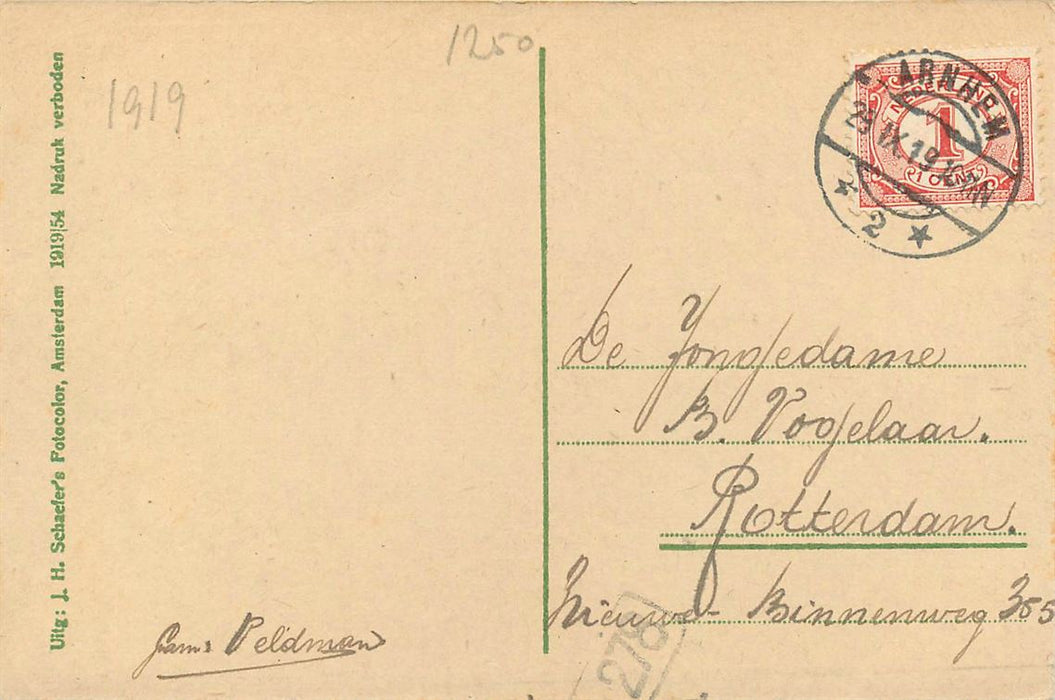 1250
1919
Uitg: J. H. Schaefer's Fotocolor, Amsterdam 1919|54 Nadruk verboden
ARNHEM
NEDERLAND
1
1 CENT
IX.19
2
De Jongedame
B. Vogelaar.
Rotterdam.
Nieuwe-Binnenweg 355
278
Fam: Veldman